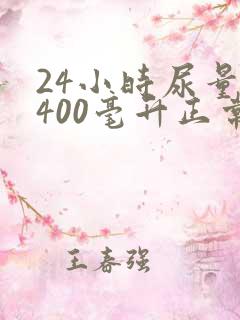 24小时尿量
400毫升正常
王春强